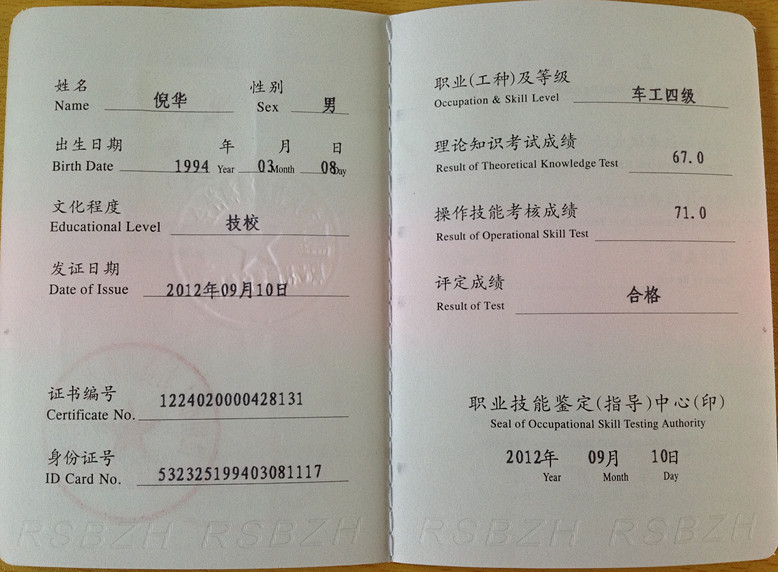 姓名 性别
Name 倪华 Sex 男
出生日期 年 月 日
Birth Date 1994 Year 03 Month 08 Day
文化程度
Educational Level 技校
发证日期
Date of Issue 2012年09月10日
证书编号
Certificate No. 1224020000428131
身份证号
ID Card No. 532325199403081117
RSBZH RSBZH
职业(工种)及等级
Occupation & Skill Level 车工四级
理论知识考试成绩
Result of Theoretical Knowledge Test 67.0
操作技能考核成绩
Result of Operational Skill Test 71.0
评定成绩
Result of Test 合格
职业技能鉴定(指导)中心(印)
Seal of Occupational Skill Testing Authority
2012年 09月 10日
Year Month Day
RSBZH RSBZH